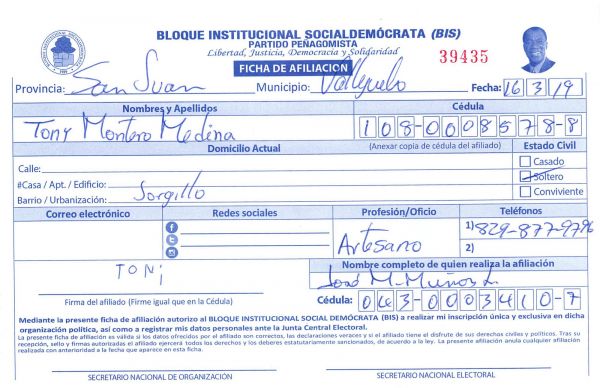 BLOQUE INSTITUCIONAL SOCIALDEMÓCRATA (BIS)
PARTIDO PEÑAGOMISTA
Libertad, Justicia, Democracia y Solidaridad
39435
FICHA DE AFILIACION
Provincia: San Juan Municipio: Vallejuelo Fecha: 16 3 19
Nombres y Apellidos Cédula
Tony Montero Medina 108-0008578-8
Domicilio Actual (Anexar copia de cédula del afiliado) Estado Civil
Calle: Casado
#Casa / Apt. / Edificio: Soltero
Barrio / Urbanización: Sorgillo Conviviente
Correo electrónico Redes sociales Profesión/Oficio Teléfonos
Artesano 1) 829-877-9796
2)
Nombre completo de quien realiza la afiliación
TONI José M. Muños L.
Firma del afiliado (Firme igual que en la Cédula) Cédula: 043-0003410-7
Mediante la presente ficha de afiliación autorizo al BLOQUE INSTITUCIONAL SOCIAL DEMÓCRATA (BIS) a realizar mi inscripción única y exclusiva en dicha
organización política, así como a registrar mis datos personales ante la Junta Central Electoral.
La presente ficha de afiliación es válida si los datos ofrecidos por el afiliado son correctos, las declaraciones veraces y si el afiliado tiene el disfrute de sus derechos civiles y políticos. Tras su
recepción, sello y firmas autorizadas el afiliado ejercerá todos los derechos y los deberes estatutariamente sancionados, de acuerdo a la ley. La presente afiliación anula cualquier afiliación
realizada con anterioridad a la fecha que aparece en esta ficha.
SECRETARIO NACIONAL DE ORGANIZACIÓN SECRETARIO NACIONAL ELECTORAL